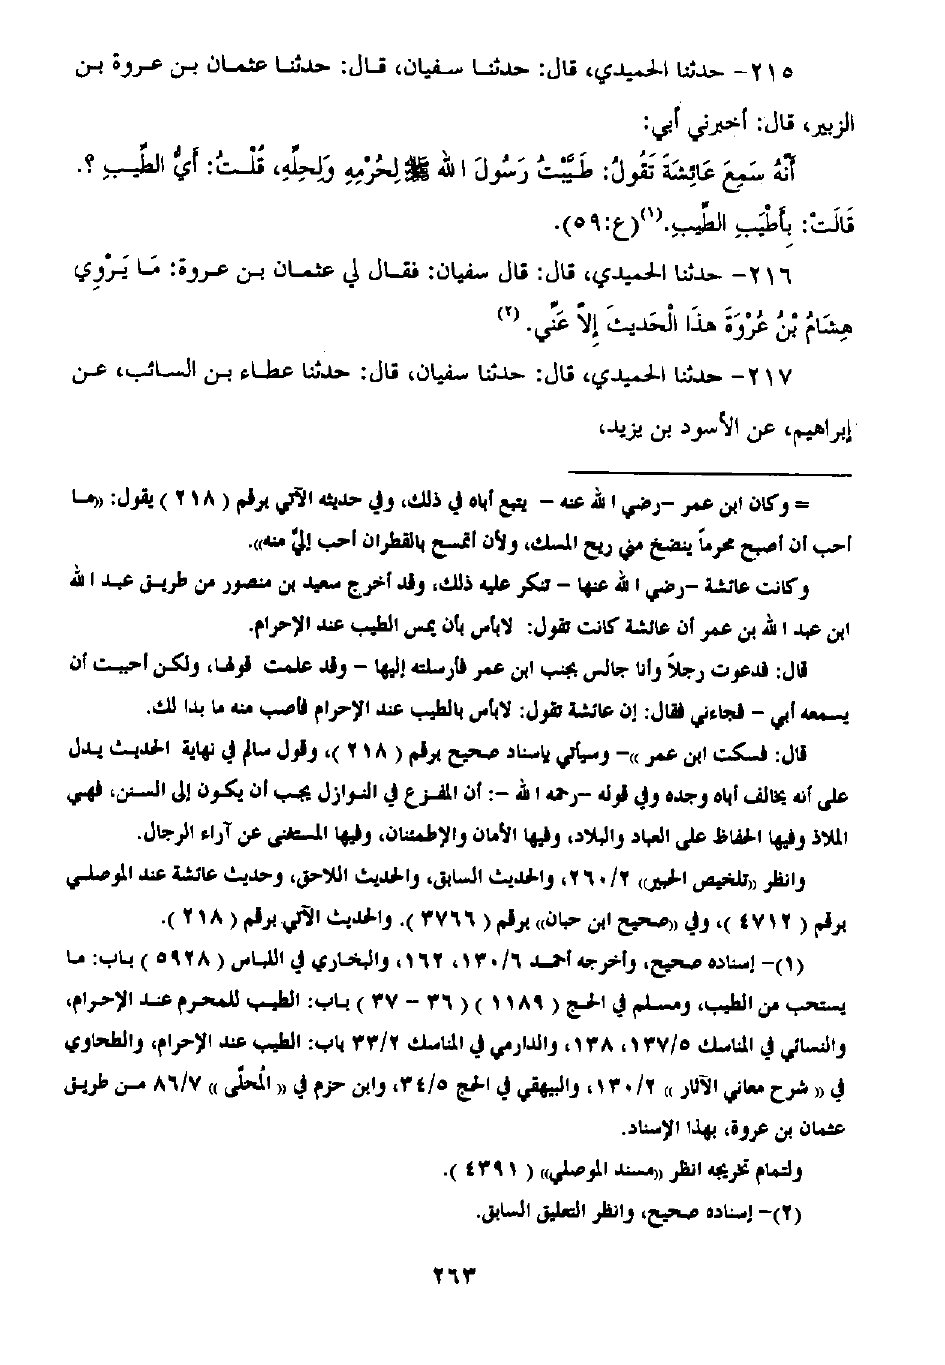 ٢١٥- حدثنا الحميدي، قال: حدثنا سفيان، قال: حدثنا عثمان بن عروة بن
الزبير، قال: أخبرني أبي:
أَنَّهُ سَمِعَ عَائِشَةَ تَقُولُ: طَيَّبْتُ رَسُولَ الله ﷺ لِحُرْمِهِ وَلِحِلِّهِ، قُلْتُ: أَيُّ الطِّيبِ ؟.
قَالَتْ: بِأَطْيَبِ الطِّيبِ.(١)(ع:٥٩).
٢١٦- حدثنا الحميدي، قال: قال سفيان: فقال لي عثمان بن عروة: مَا يَرْوِي
هِشَامُ بْنُ عُرْوَةَ هذَا الْحَدِيثَ إِلاَّ عَنِّي. (٢)
٢١٧- حدثنا الحميدي، قال: حدثنا سفيان، قال: حدثنا عطاء بن السائب، عن
إبراهيم، عن الأسود بن يزيد،
= وكان ابن عمر -رضي الله عنه - يتبع أباه في ذلك، وفي حديثه الآتي برقم ( ٢١٨ ) يقول: «ما
أحب أن أصبح محرماً ينضخ مني ريح المسك، ولأن أتمسح بالقطران أحب إليَّ منه».
وكانت عائشة -رضي الله عنها - تنكر عليه ذلك، وقد أخرج سعيد بن منصور من طريق عبد الله
ابن عبد الله بن عمر أن عائشة كانت تقول: لابأس بأن يمس الطيب عند الإحرام.
قال: فدعوت رجلاً وأنا جالس بجنب ابن عمر فأرسلته إليها - وقد علمت قولها، ولكن أحببت أن
يسمعه أبي - فجاءني فقال: إن عائشة تقول: لابأس بالطيب عند الإحرام فأصب منه ما بدا لك.
قال: فسكت ابن عمر »- وسيأتي بإسناد صحيح برقم ( ٢١٨ )، وقول سالم في نهاية الحديث يدل
على أنه يخالف أباه وجده وفي قوله -رحمه الله -: أن المفزع في النوازل يجب أن يكون إلى السنن، فهي
الملاذ وفيها الحفاظ على العباد والبلاد، وفيها الأمان والإطمئنان، وفيها المستغنى عن آراء الرجال.
وانظر «تلخيص الحبير» ٢٦٠/٢، والحديث السابق، والحديث اللاحق، وحديث عائشة عند الموصلي
برقم ( ٤٧١٢ )، وفي «صحيح ابن حبان» برقم ( ٣٧٦٦ ). والحديث الآتي برقم ( ٢١٨ ).
(١)- إسناده صحيح، وأخرجه أحمد ١٣٠/٦، ١٦٢، والبخاري في اللباس ( ٥٩٢٨ ) باب: ما
يستحب من الطيب، ومسلم في الحج ( ١١٨٩ ) ( ٣٦ - ٣٧ ) باب: الطيب للمحرم عند الإحرام،
والنسائي في المناسك ١٣٧/٥، ١٣٨، والدارمي في المناسك ٣٣/٢ باب: الطيب عند الإحرام، والطحاوي
في « شرح معاني الآثار » ١٣٠/٢، والبيهقي في الحج ٣٤/٥، وابن حزم في « المُحلَّى » ٨٦/٧ من طريق
عثمان بن عروة، بهذا الإسناد.
ولتمام تخريجه انظر «مسند الموصلي» ( ٤٣٩١ ).
(٢)- إسناده صحيح، وانظر التعليق السابق.
٢٦٣